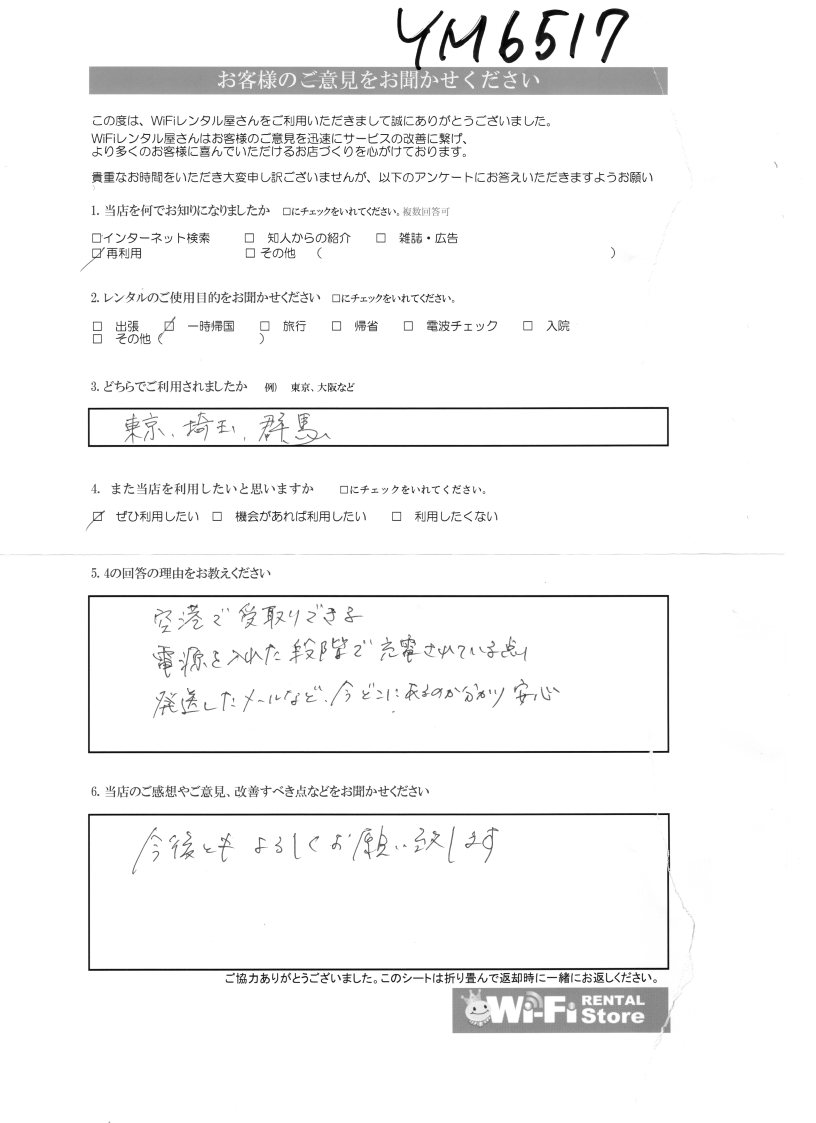 YM6517
お客様のご意見をお聞かせください
この度は、WiFiレンタル屋さんをご利用いただきまして誠にありがとうございました。
WiFiレンタル屋さんはお客様のご意見を迅速にサービスの改善に繋げ、
より多くのお客様に喜んでいただけるお店づくりを心がけております。
貴重なお時間をいただき大変申し訳ございませんが、以下のアンケートにお答えいただきますようお願い
1. 当店を何でお知りになりましたか □にチェックをいれてください。複数回答可
□インターネット検索 □ 知人からの紹介 □ 雑誌・広告
☑再利用 □ その他 ( )
2. レンタルのご使用目的をお聞かせください □にチェックをいれてください。
□ 出張 ☑ 一時帰国 □ 旅行 □ 帰省 □ 電波チェック □ 入院
□ その他 ( )
3. どちらでご利用されましたか 例) 東京、大阪など
東京、埼玉、群馬
4. また当店を利用したいと思いますか □にチェックをいれてください。
☑ ぜひ利用したい □ 機会があれば利用したい □ 利用したくない
5. 4の回答の理由をお教えください
空港で受取りできる
電源を入れた段階で充電されている点
発送したメールなど、今どこにあるのか分かり安心
6. 当店のご感想やご意見、改善すべき点などをお聞かせください
今後ともよろしくお願い致します
ご協力ありがとうございました。このシートは折り畳んで返却時に一緒にお返しください。
Wi-Fi RENTAL Store